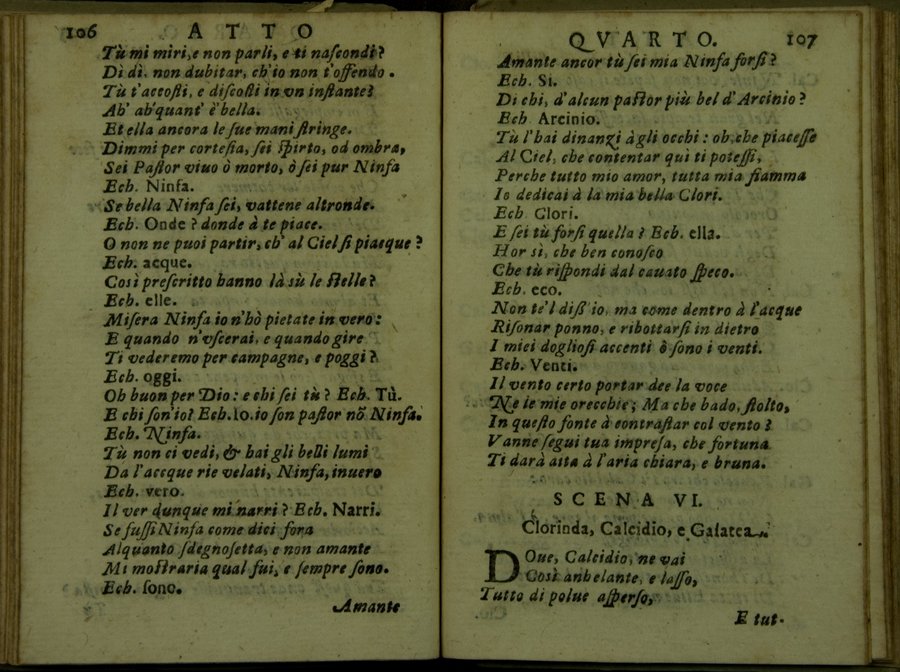 106 ATTO
Tù mi miri, e non parli, e ti naſcondi?
Di dì. non dubitar, ch'io non t'offendo.
Tù t'accoſti, e diſcoſti in vn inſtante?
Ah' ah' quant' è bella.
Et ella ancora le ſue mani ſtringe.
Dimmi per corteſia, ſei ſpirto, od ombra,
Sei Paſtor viuo ò morto, ò ſei pur Ninfa
Ech. Ninfa.
Se bella Ninfa ſei, vattene altronde.
Ech. Onde? donde à te piace.
O non ne puoi partir, ch' al Ciel ſi piacque?
Ech. acque.
Così preſcritto hanno là sù le ſtelle?
Ech. elle.
Miſera Ninfa io n'hò pietate in vero:
E quando n'vſcerai, e quando gire
Ti vederemo per campagne, e poggi?
Ech. oggi.
Oh buon per Dio: e chi ſei tù? Ech. Tù.
E chi ſon'io? Ech. Io. io ſon paſtor nõ Ninfa.
Ech. Ninfa.
Tù non ci vedi, & hai gli belli lumi
Da l'accque rie velati, Ninfa, inuero
Ech. vero.
Il ver dunque mi narri? Ech. Narri.
Se fuſſi Ninfa come dici fora
Alquanto ſdegnoſetta, e non amante
Mi moſtraria qual fui, e ſempre ſono.
Ech. ſono.
Amante
QVARTO. 107
Amante ancor tù ſei mia Ninfa forſi?
Ech. Si.
Di chi, d'alcun paſtor più bel d'Arcinio?
Ech. Arcinio.
Tù l'hai dinanzi à gli occhi: oh che piaceſſe
Al Ciel, che contentar quì ti poteſſi,
Perche tutto mio amor, tutta mia fiamma
Io dedicai à la mia bella Clori.
Ech. Clori.
E ſei tù forſi quella? Ech. ella.
Hor sì, che ben conoſco
Che tù riſpondi dal cauato ſpeco.
Ech. eco.
Non te'l diſſ' io, ma come dentro à l'acque
Riſonar ponno, e ribottarſi in dietro
I miei doglioſi accenti ò ſono i venti.
Ech. Venti.
Il vento certo portar dee la voce
Ne le mie orecchie; Ma che bado, ſtolto,
In queſto fonte à contraſtar col vento?
Vanne ſegui tua impreſa, che fortuna
Ti darà aita à l'aria chiara, e bruna.
SCENA VI.
Clorinda, Calcidio, e Galatea.
Doue, Calcidio, ne vai
Così anhelante, e laſſo,
Tutto di polue aſperſo,
E tut-